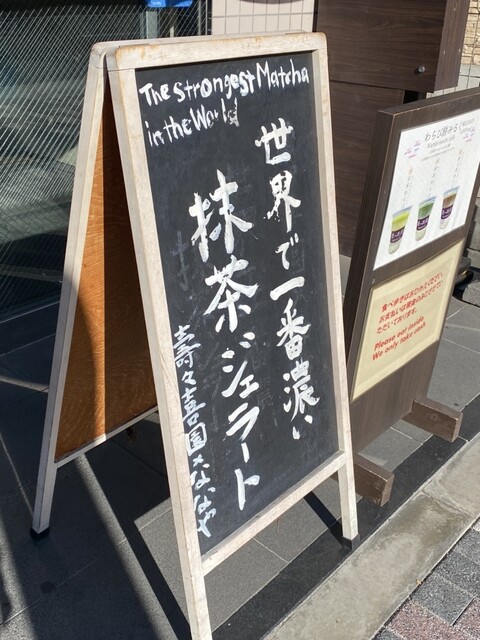 The strongest Matcha
in the World
世界で一番濃い
抹茶ジェラート
壽々喜園×ななや
わらび餅みるく
食べ歩きはおやめください。
Please eat inside
We only take cash